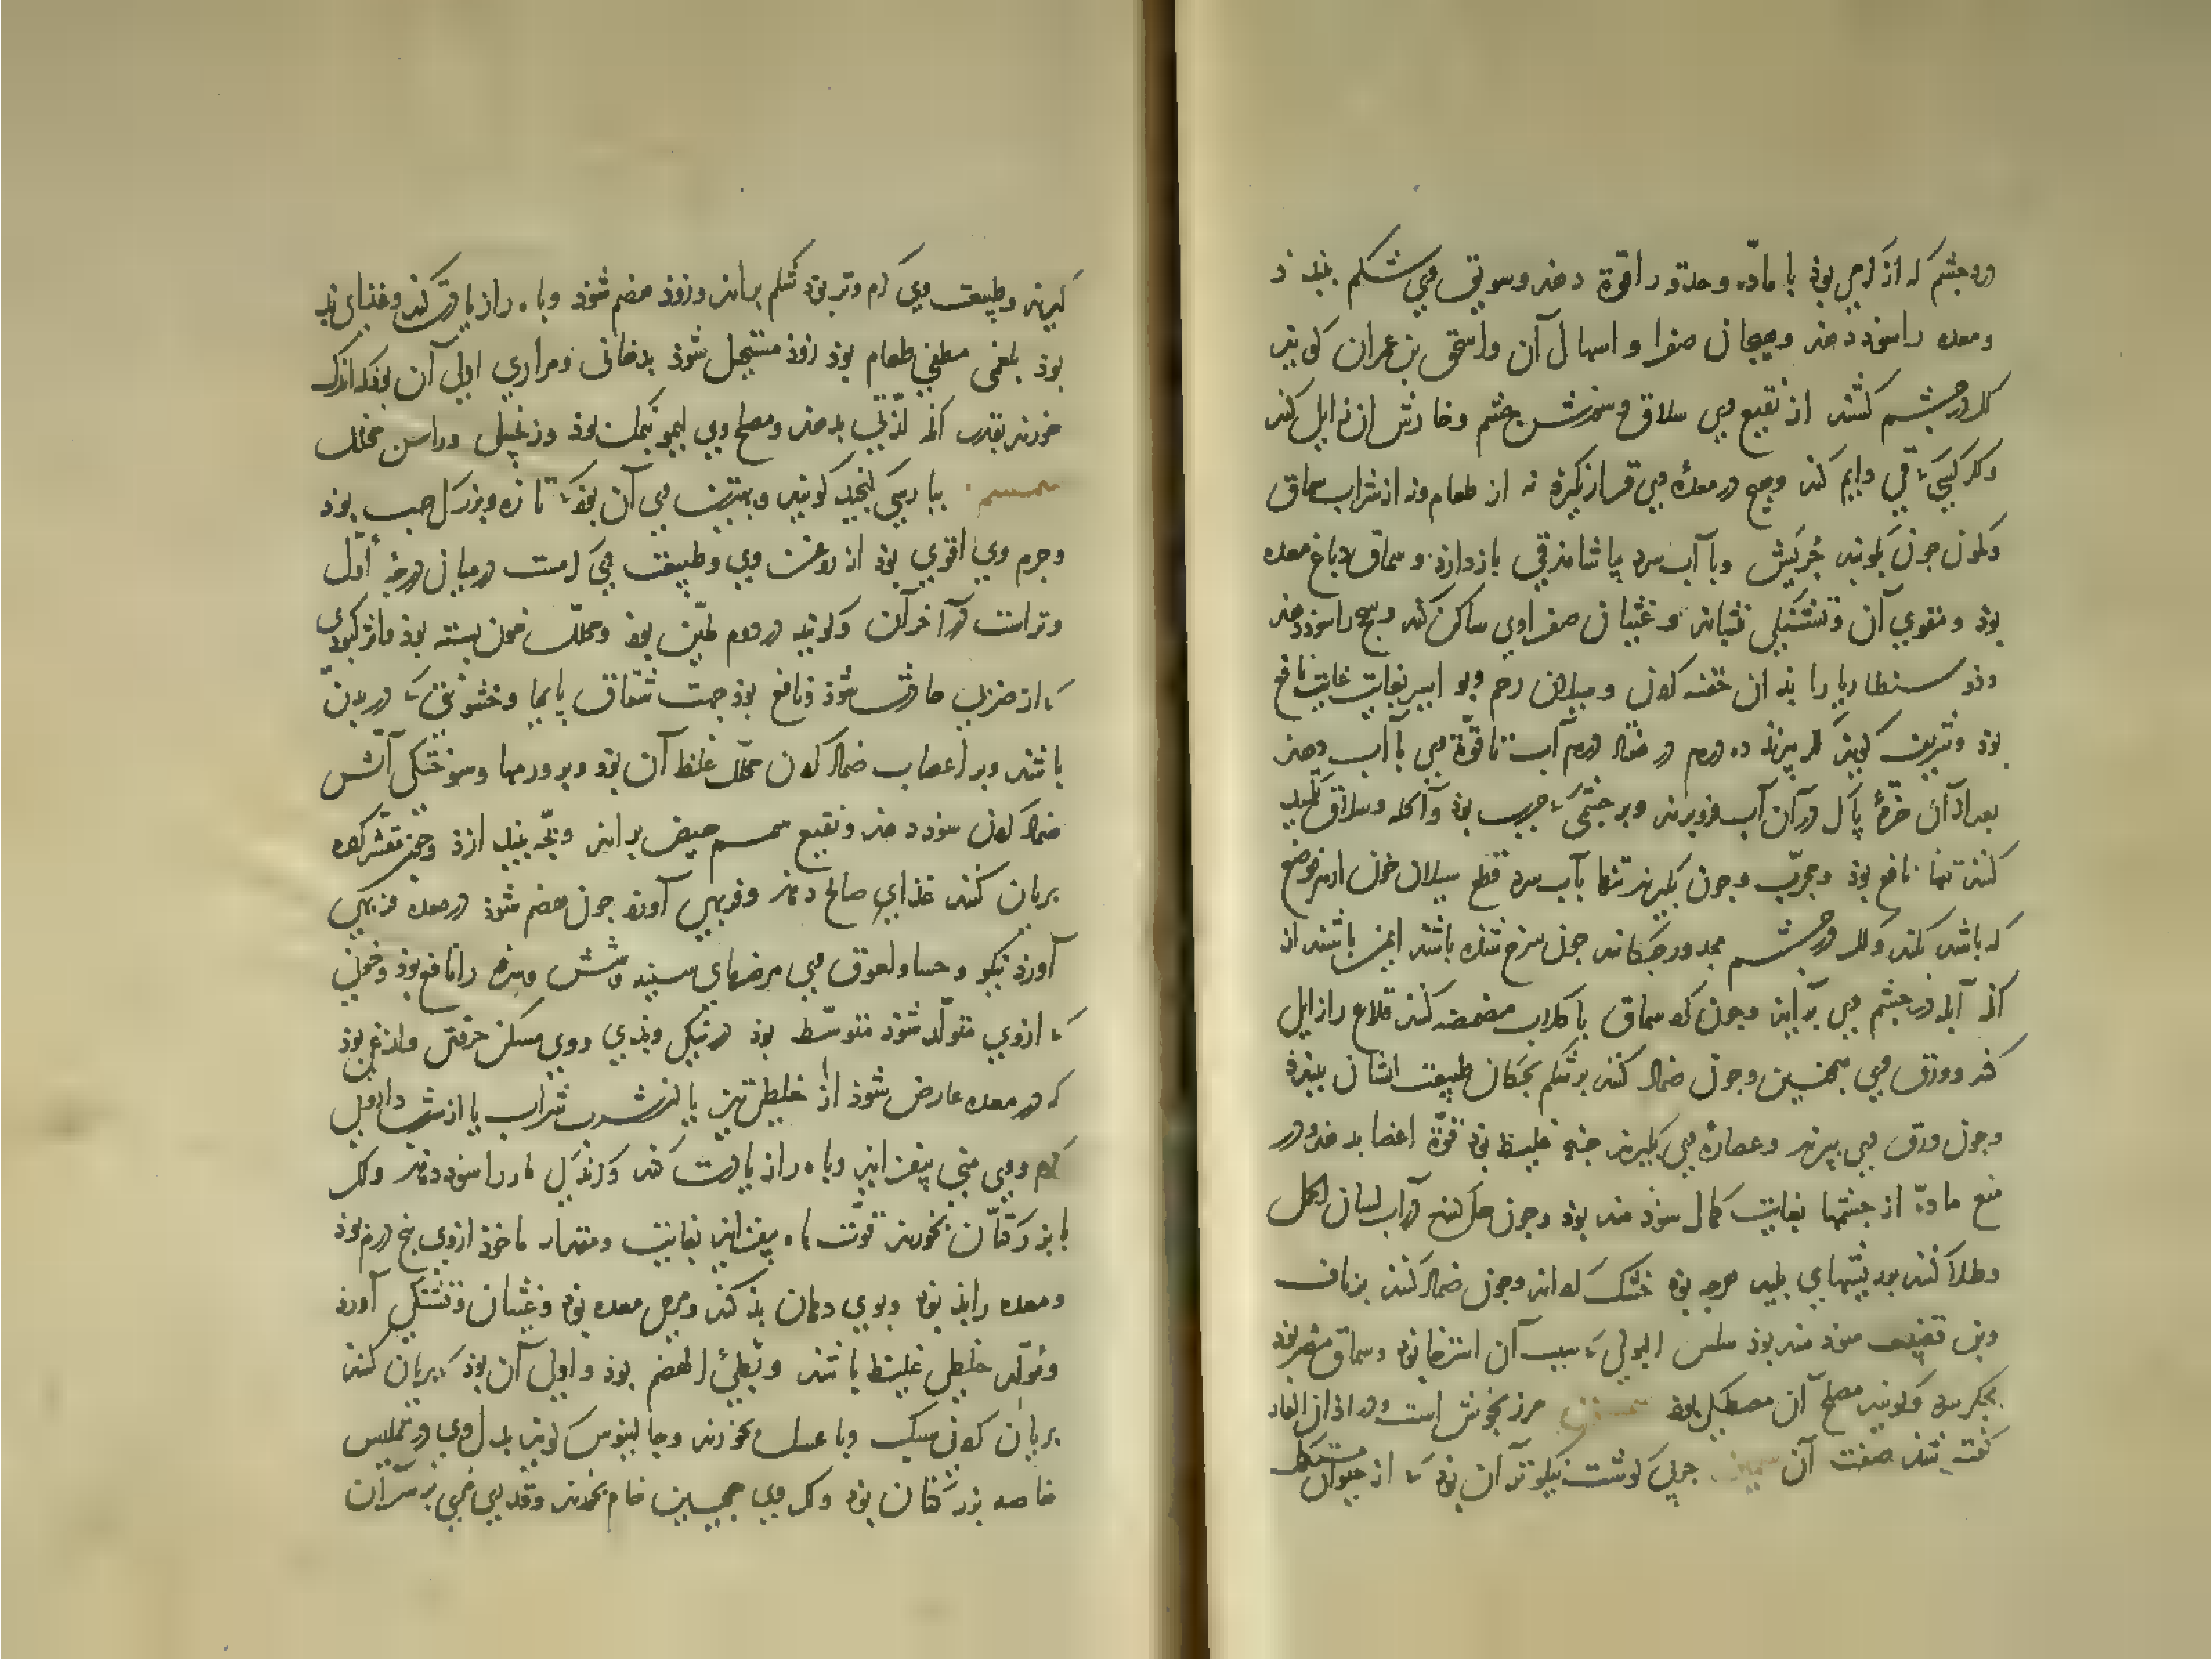 درد چشم که از گرمی بوذ با مادّه و حدقه را قوة دهد و سویق وی شکم ببندد
و معده را سوذ دهد و هیجان صفرا و اسهال آن و اسحق بن عمران کویذ
کر در چشم کشند از نقیع وی سلاق و سوزش چشم و خارش از زایل کند
و کر کسی قی دایم کند و هیچ در معدهٔ وی قرار نکیرد نه از طعام و نه از شراب سماق
و کمون چون بکوبند جریش و با آب سرد بیاشامذ قی باز دارد و سماق دباغ معده
بوذ و مقوی آن و تشنکی بنشاند و غثیان صفراوی ساکن کند و سحج را سوذ دهد
بوذ و شربت کیرند ده درم در درم آب تا قوّة وی با آب دهد
بعد از آن خرقهٔ پاک در آن آب فرو برند و بر چشمی جرب بوذ و آکله و سلاق
کنند تنها نافع بوذ و مجرّب و چون بکیرند تنها بآب سرد قطع سیلان خون از هر موضع
که باشد بکند و کر در چشم مجدور چکانند چون سرخ شده باشد ایمن باشند از
آنک آبله در چشم وی برآید و چون که سماق با کلاب مضمضه کنند قلاع را زایل
کند و ورق وی همچنین و چون ضماد کنند بر شکم بچکان طبیعت ایشان ببندد
و چون ورق وی بپزند و عصارهٔ وی بکیرند غلیظ بوذ قوّة اعضا بدهد و در
منع مادّه از چشمها بغایت کمال سوذمند بوذ و چون حل کنند در آب لسان الحمل
و طلا کنند بر پشتهای پلید هرچه بوذ خشک کرداند و چون ضماد کنند بر عانه
و بن قضیب سوذمند بوذ سلس البولی سبب آن استرخا بوذ و سماق مضر بوذ
بجکر سرد و کویند مصلح آن مصطکی بوذ مرزنجوش است و در آذان الفار
کفته شذ صفت آن چربی کوشت نیکوتر آن بوذ از حیوان
کیرند و طبیعت وی کرم و تر بوذ شکم براند و زوذ هضم شوذ و باه را زیادة کند و غذای بد
بوذ بلغمی مطفی طعام بوذ زوذ مستحیل شوذ بدخانی و مراری اولی آن بوذ که اندک
خورند بقدر آنک لذّتی بدهد و مصلح وی لیمو بنمک بوذ و زنجبیل و راسن مخلل
سمسم بپارسی کنجد کویند و بهترین وی آن بوذ تازه و بزرک حب بوذ
و جرم وی اقوی بوذ از روغن وی و طبیعت وی کرمست در میان درجه اوّل
و تر است در آخر آن و کویند در دوم ملیّن بوذ و محلّل خون بسته بوذ و اثر کبودی
از ضربی حادث شوذ و نافع بوذ جهت شقاق پایها و خشونتی در بدن
باشد و بر اعصاب ضماد کردن محلّل غلظ آن بوذ و بر ورمها و سوختکی آتش
ضماد کردن سوذ دهد و نقیع سمسم حیض براند و بچّه بیندازد و چون مقشّر کرده
بریان کنند غذای صالح دهد و فربهی آورد چون هضم شوذ در معده فربهی
آورد نیکو و حسا و لعوق وی مرضهای سینه و شش و سرفه را نافع بوذ و خونی
از وی متولّد شوذ متوسّط بوذ در نیکی و بذی و وی مسکن حرقتی و لذعی بوذ
که در معده عارض شوذ از خلطی تیز یا از شرب شراب یا از داروی
کرم و وی منی بیفزاید و باه را زیادت کند و کزندکی مار را سوذ دهد و کر
با بزر کتّان بخورند قوّت باه بیفزاید بغایت و مقدار ماخوذ از وی پنج درم بوذ
و معده را بد بوذ و بوی دهان بد کند و مرخی معده بوذ و غثیان و تشنکی آورد
و مولّد خلطی غلیظ باشد و بطیء الهضم بوذ و اولی آن بوذ بریان کنند
بریان کردنی سبک و با عسل بخورند و جالینوس کوید بدل وی در تملیس
خاصه بزر کتان بوذ و کر وی همچنین خام بخورند و قدری می بر سر آن